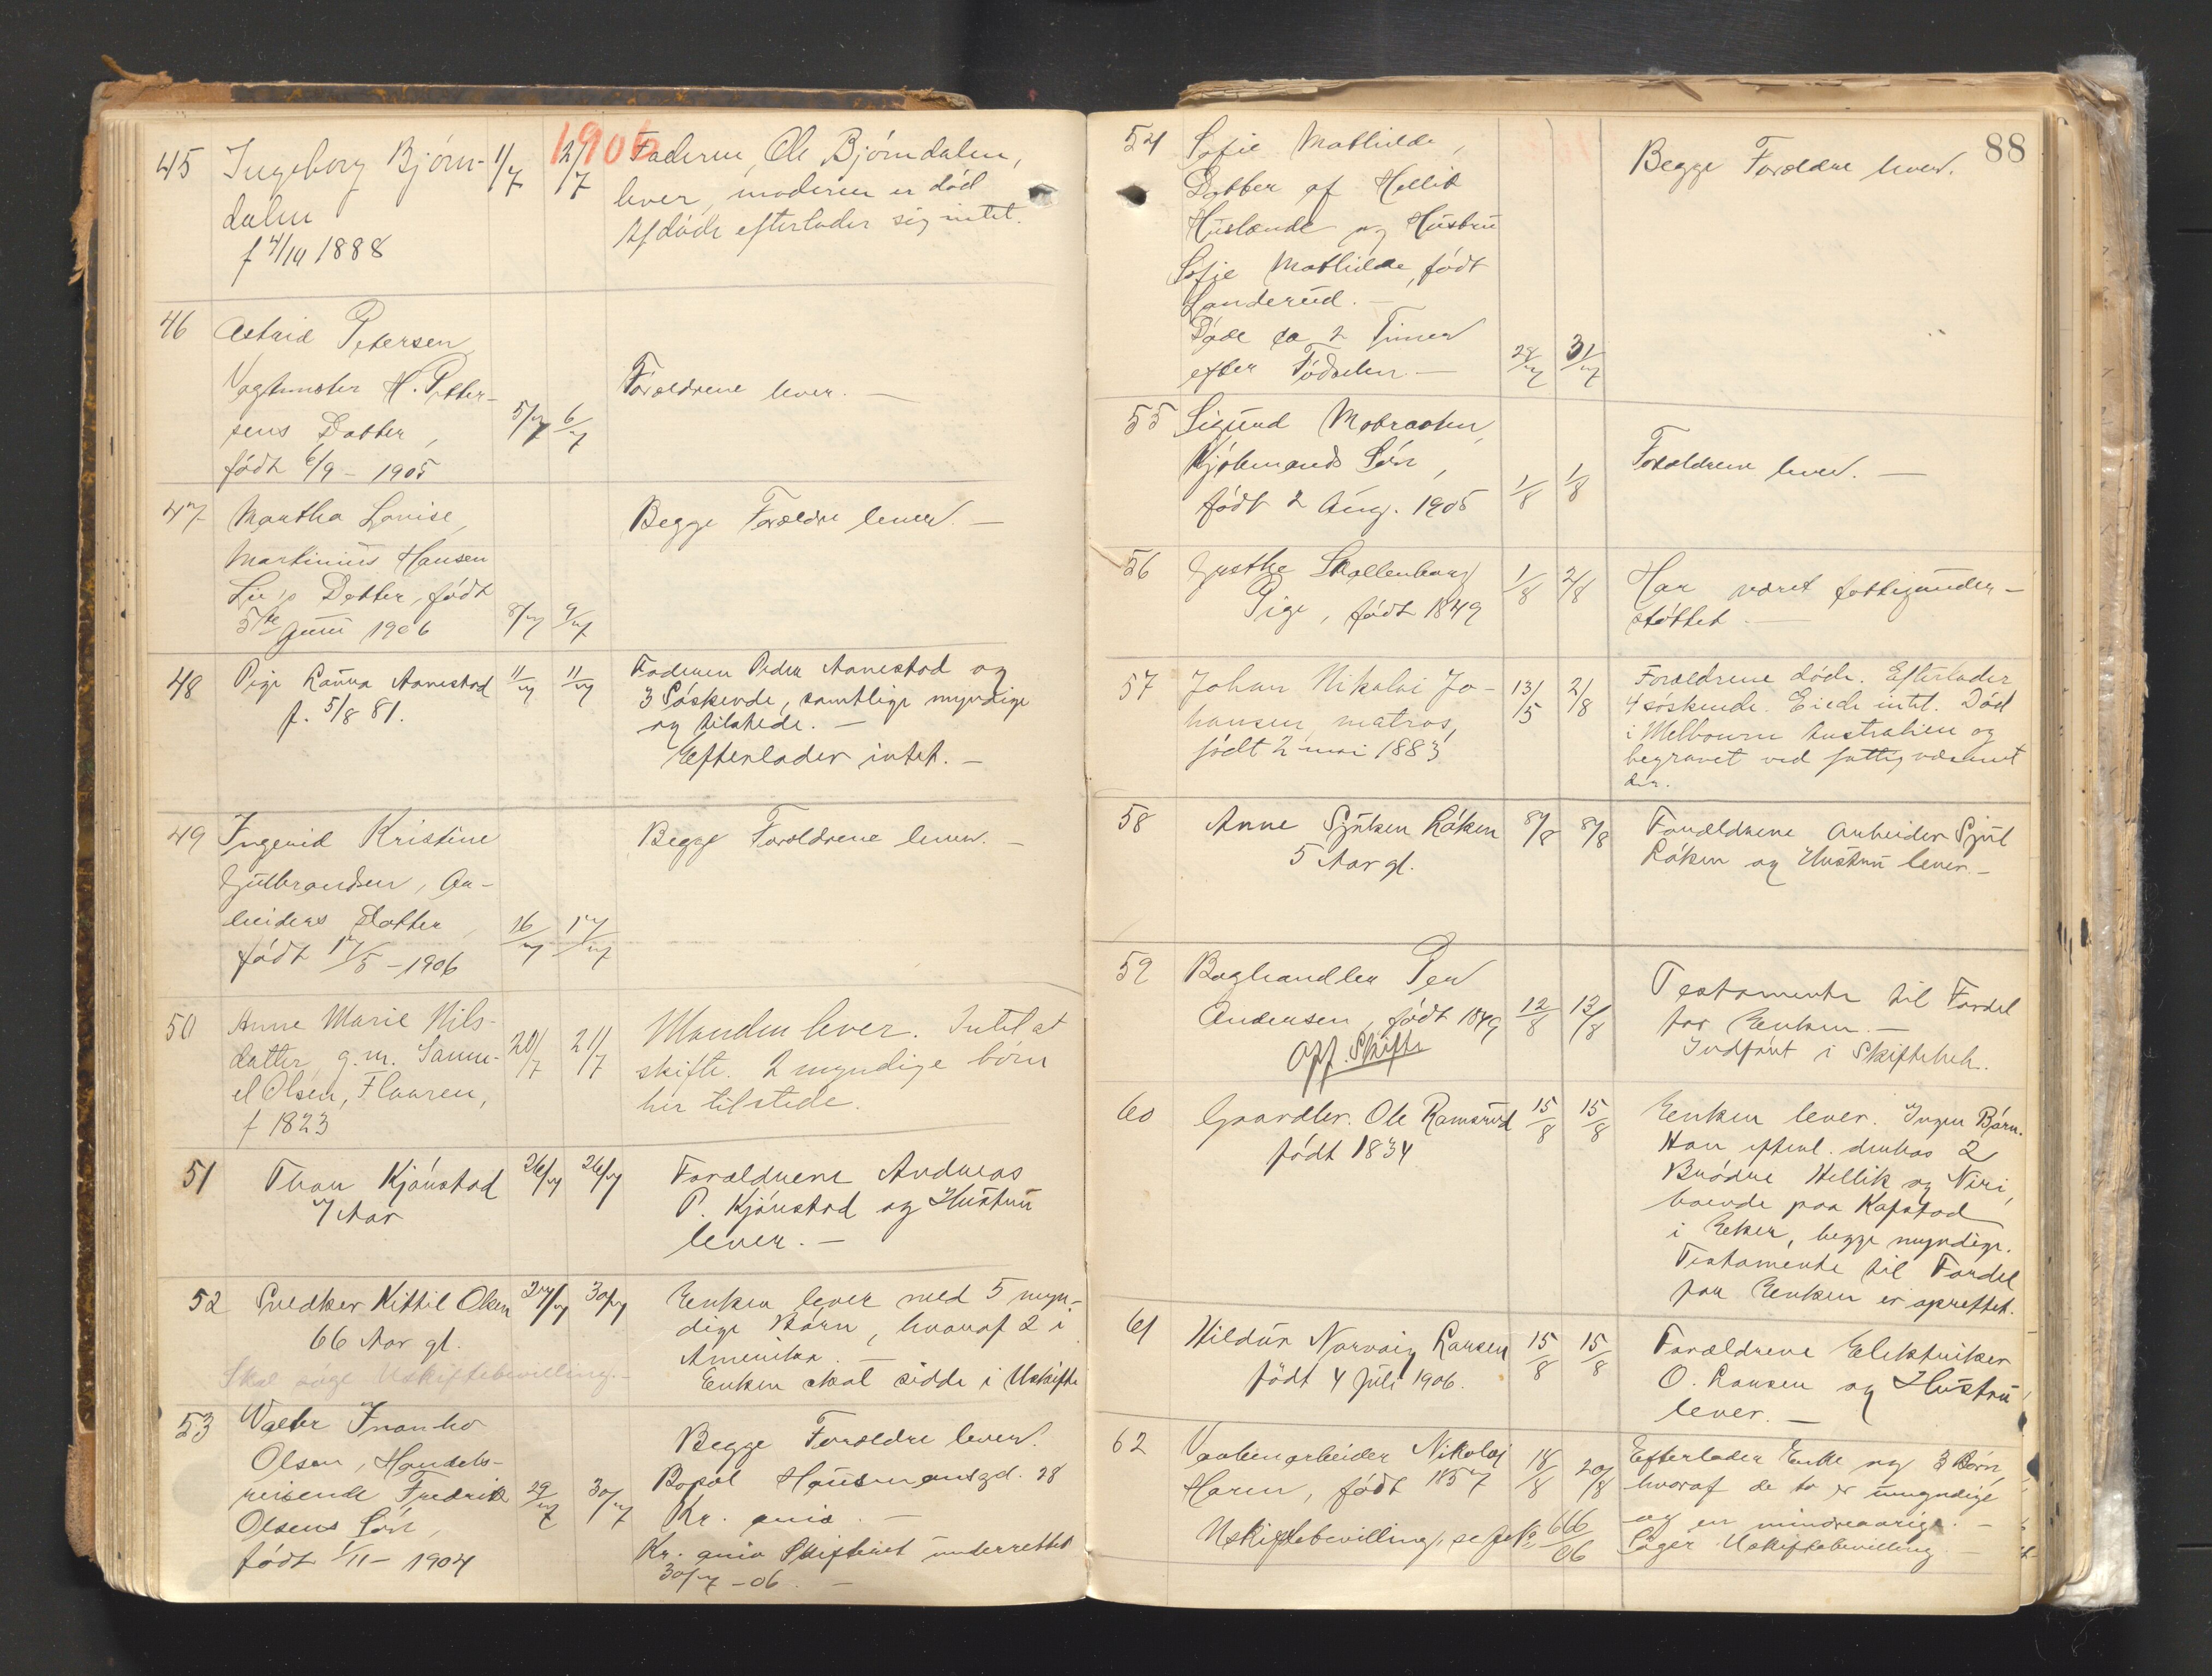 1906
45 Ingeborg Bjørn- 1/7 2/7 Faderen, Ole Bjørndalen,
dalen lever, moderen er død
f 4/10 1888 Afdøde efterlader sig intet.
46 Astrid Petersen,
Vagtmester H. Petter-
sens Datter, 5/7 6/7 Forældrene lever. —
født 6/9 – 1905
47 Martha Lovise, Begge Forældre lever. —
Martinius Hansen
Lie's Datter, født
5te Juni 1906 8/7 9/7
48 Pige Laura Aanestad 11/7 11/7 Faderen Peder Aanestad og
f. 5/8 81. 3 Søskende, samtlige myndige
og tilstede. —
Efterlader intet. —
49 Ingerid Kristine Begge Forældrene lever. —
Gulbrandsen, Ar-
beiders Datter, 16/7 17/7
født 17/5 – 1906
50 Anne Marie Nils- 20/7 21/7 Manden lever. Intet at
datter, g. m. Samu- skifte. 2 myndige børn
el Olsen, Flaaren, her tilstede.
f 1823
51 Thor Kjønstad 26/7 26/7 Forældrene Andreas
7 Aar P. Kjønstad og Hustru
lever. —
52 Snedker Kittil Olsen 27/7 30/7 Enken lever med 5 myn-
66 Aar gl. dige Børn, hvoraf 2 i
Skal søge Uskiftebevilling. — Amerika. —
Enken skal sidde i Uskifte
53 Valter Ivanho Begge Forældre lever.
Olsen, Handels- Bopæl Hausmansgd. 28
reisende Fredrik 29/7 30/7 Kr. ania. —
Olsens Søn, Kr. ania Skifteret underrettet
født 1/11 – 1904 30/7 – 06. —
88
54 Sofie Mathilde, Begge Forældre lever.
Datter af Hellik
Huslænde og Hustru
Sofie Mathilde, født
Landerud. —
Døde ca 2 Timer
efter Fødselen. — 28/7 31/7
55 Sigurd Mobraaten,
Kjøbmands Søn, Forældrene lever. —
født 2 Aug. 1905 1/8 1/8
56 Gusthe Skollenborg 1/8 2/8 Har været fattigunder-
Pige, født 1849 støttet. —
57 Johan Nikolai Jo- 13/5 2/8 Forældrene døde. Efterlader
hansen, matros, 4 søskende. Eiede intet. Død
født 2 mai 1883 i Melbourne Australien og
begravet ved fattigvæsenet
der.
58 Anne Sjulsen Løken 8/8 8/8 Forældrene Arbeider Sjul
5 Aar gl. Løken og Hustru lever. —
59 Boghandler Per 12/8 13/8 Testamente til Fordel
Andersen, født 1849 for Enken. —
Off. Skifte Indført i Skiftebeh.
60 Gaardbr. Ole Ramsrud 15/8 15/8 Enken lever. Ingen Børn.
født 1834 Han efterl. derhos 2
Brødre Hellik og Niri,
boende paa Kapstad
i Eker, begge myndige.
Testamente til Fordel
for Enken er oprettet.
61 Hildur Norvaig Larsen 15/8 15/8 Forældrene Elektriker
født 4 Juli 1906. O. Larsen og Hustru
lever. —
62 Vaabenarbeider Nikolai 18/8 20/8 Efterlader Enke og 3 Børn,
Haren, født 1857 hvoraf de to er umyndige
og en mindreaarige. —
Uskiftebevilling, se 66/06 Søger Uskiftebevilling —